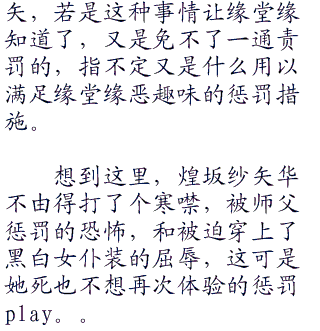 矢，若是这种事情让缘堂缘
知道了，又是免不了一通责
罚的，指不定又是什么用以
满足缘堂缘恶趣味的惩罚措
施。
想到这里，煌坂纱矢华
不由得打了个寒噤，被师父
惩罚的恐怖，和被迫穿上了
黑白女仆装的屈辱，这可是
她死也不想再次体验的惩罚
play。。